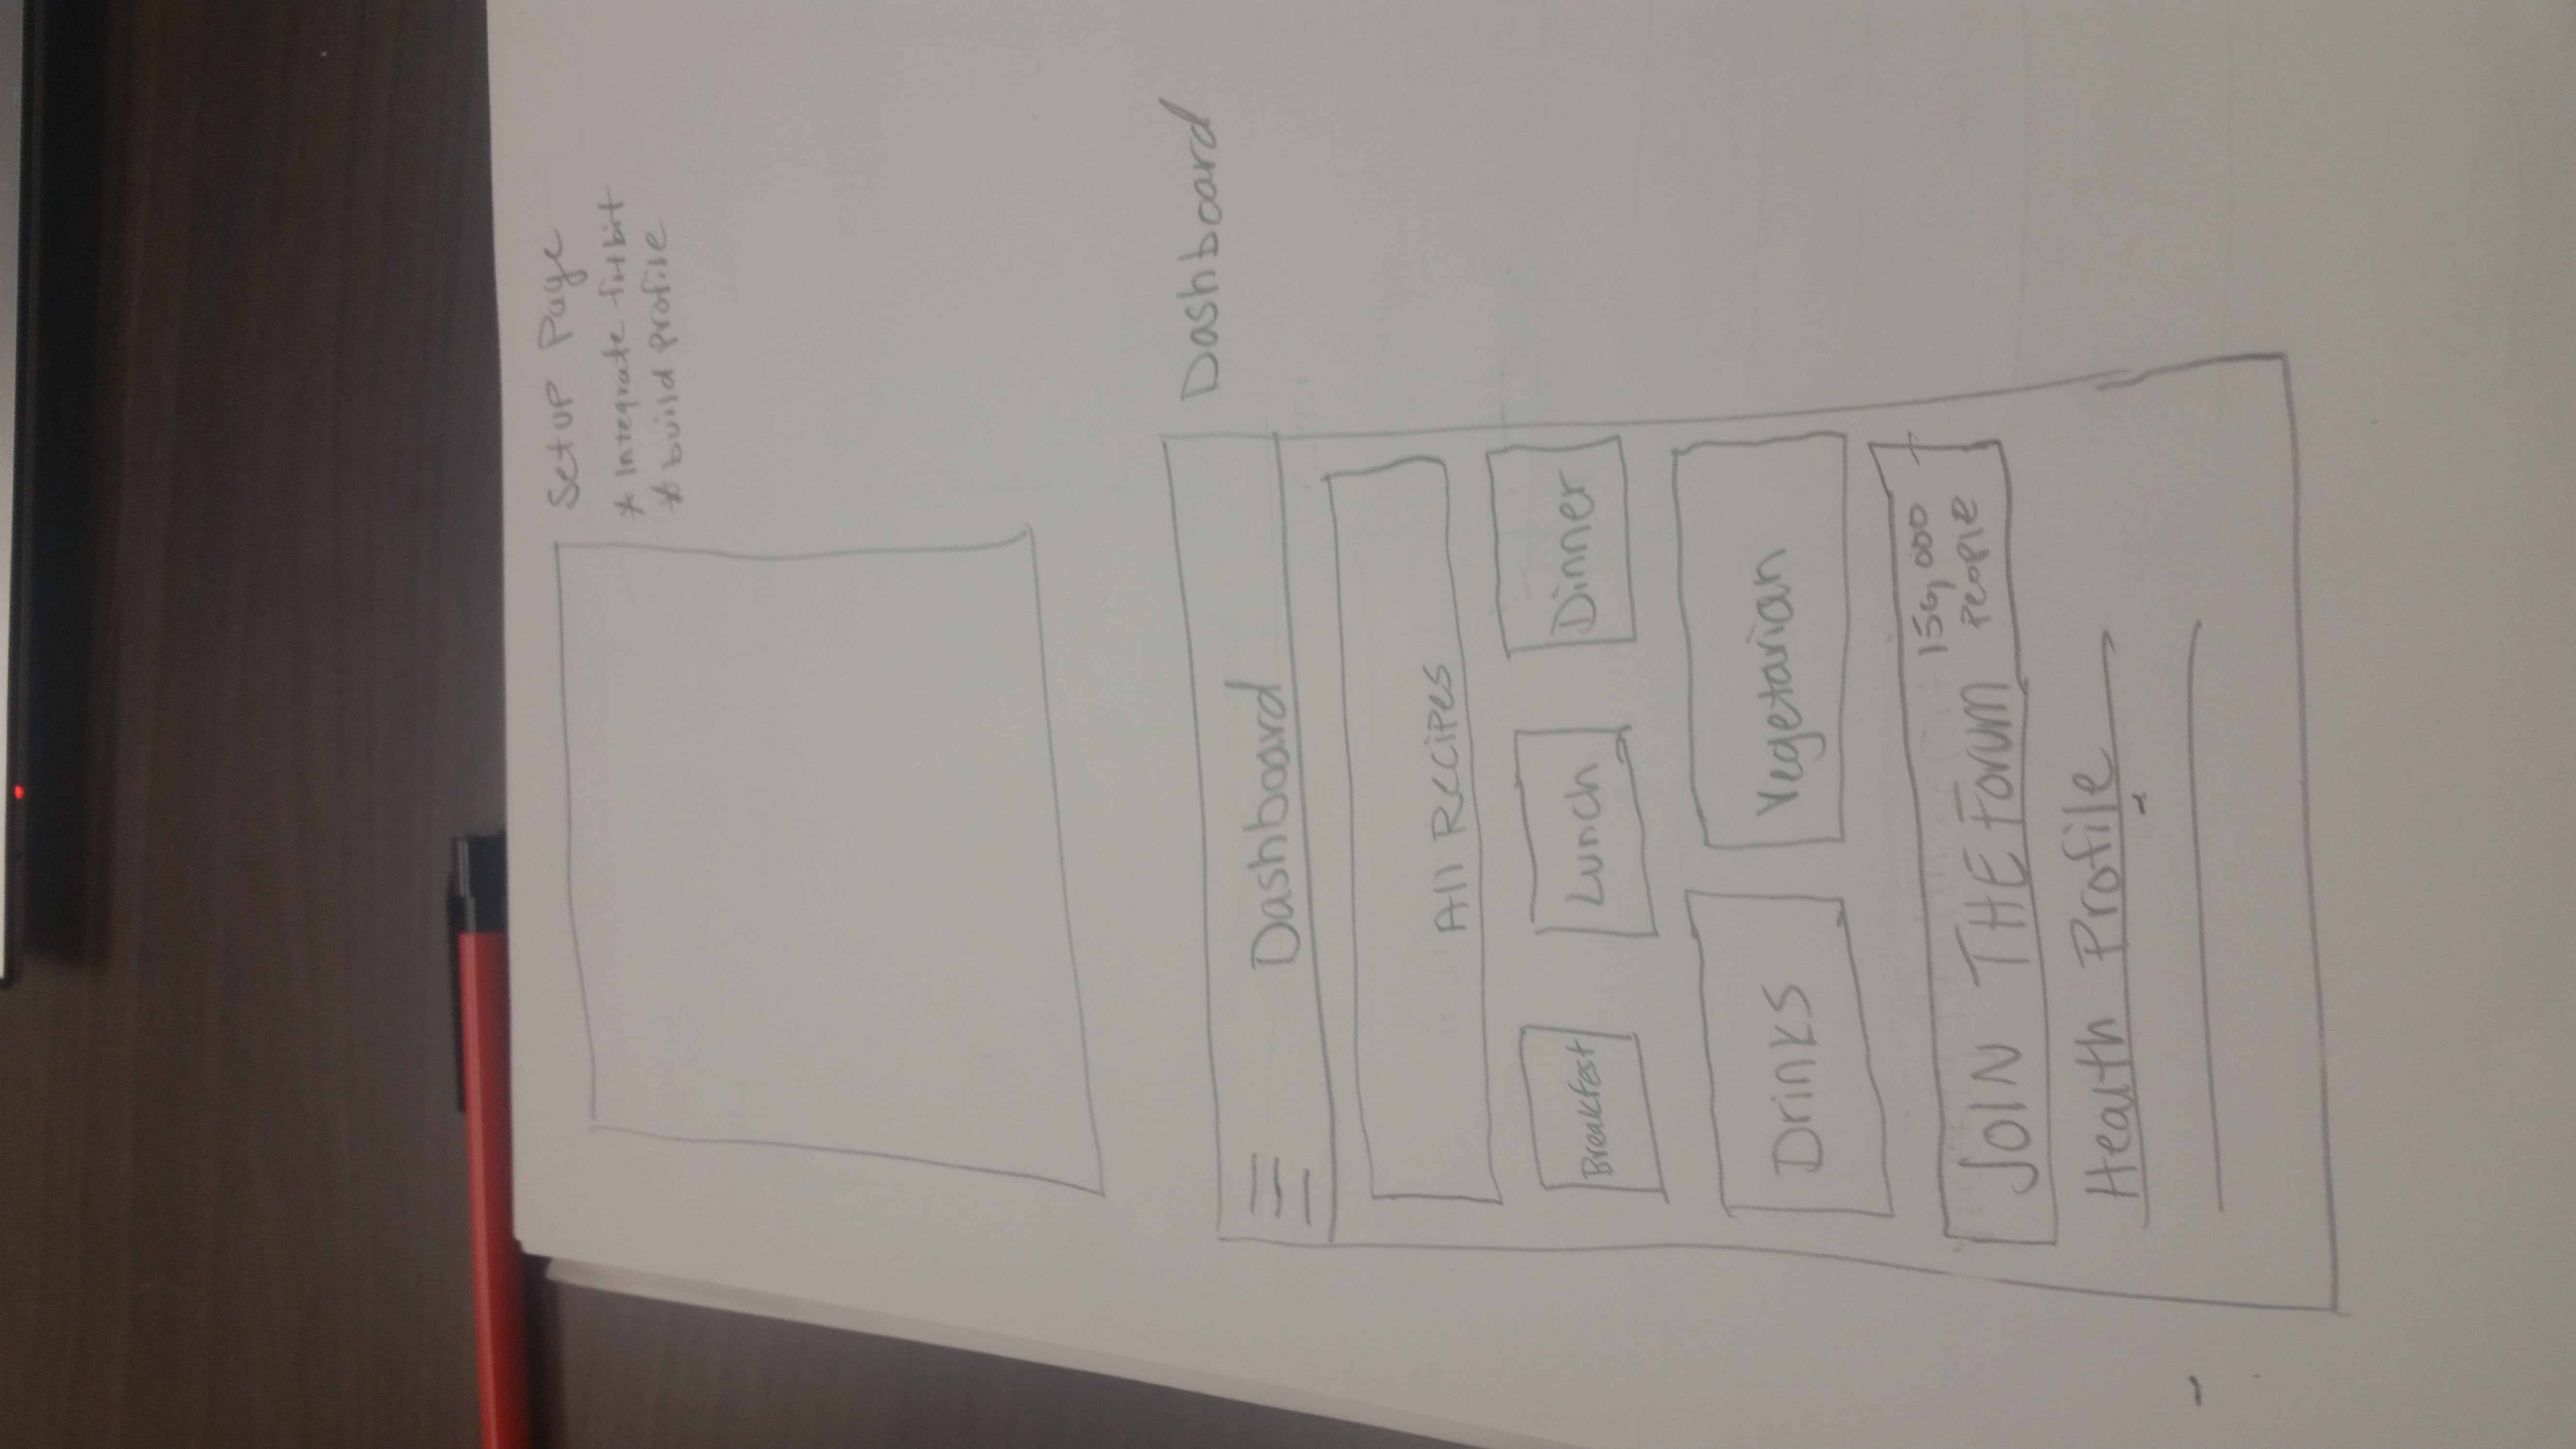 Setup Page
* Integrate fitbit
* build profile
Dashboard
Dashboard
All Recipes
Breakfest Lunch Dinner
Drinks Vegetarian
JOIN THE Forum 150,000
PEOPLE
Health Profile